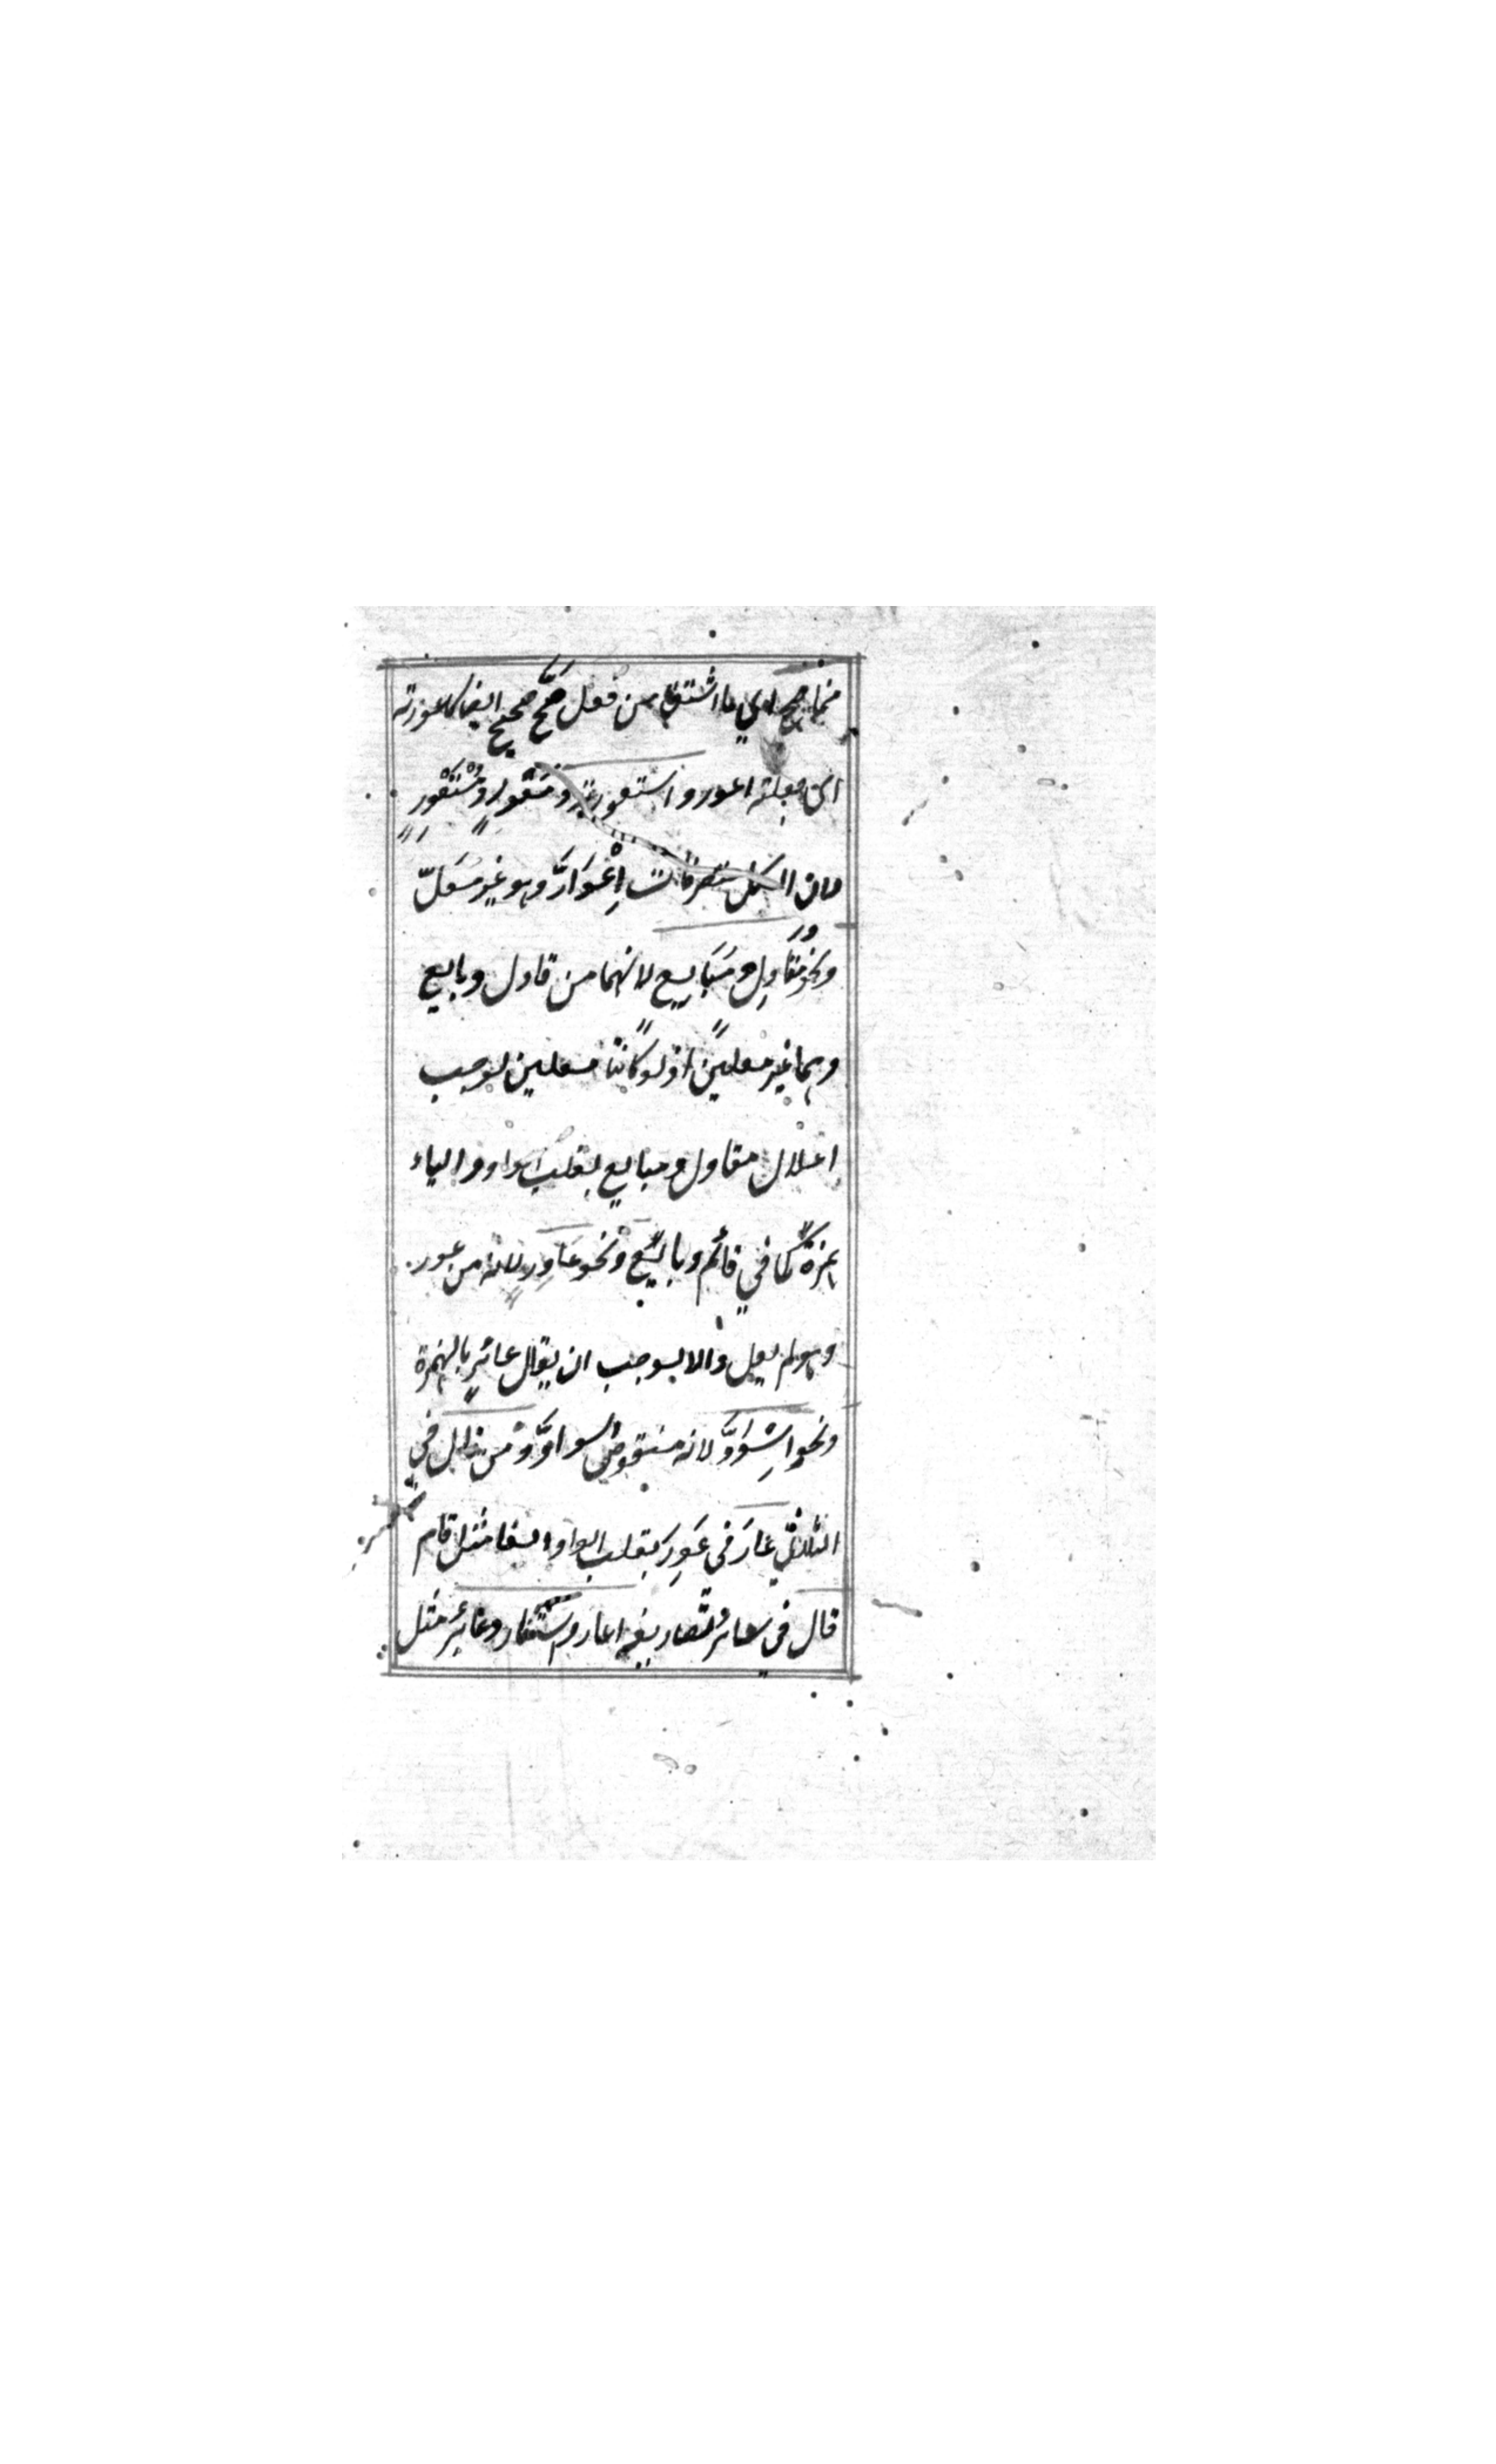 مما صح اي ما اشتق من فعل صَحَّ صحيح ايضا كاعورته
اي جعلته اعور واستعورته ومُعْوِرٍ ومُسْتَعْوِرٍ
فان الكل متصرفات اِعْوَارَّ وهو غير مُعَلّ
ونحو مُقَاوِل ومُبَايِع لانهما من قاول وبايع
وهما غير معلين اذ لو كانتا معلين لوجب
اعلال مقاول ومبايع بقلب الواو والياء
همزةً كما في قائم وبائع ونحو عَاوِر لانه من عور
وهو لم يعل والا لوجب ان يقال عائر بالهمزة
ونحو اِسْوَدَّ لانه منقوص اسوادَّ ومن قال في
الثلاثي عَارَ في عَوِرَ بقلب الواو الفا مثل قام
قال في سائر تصاريفه اعار واستعار وعائر مثل